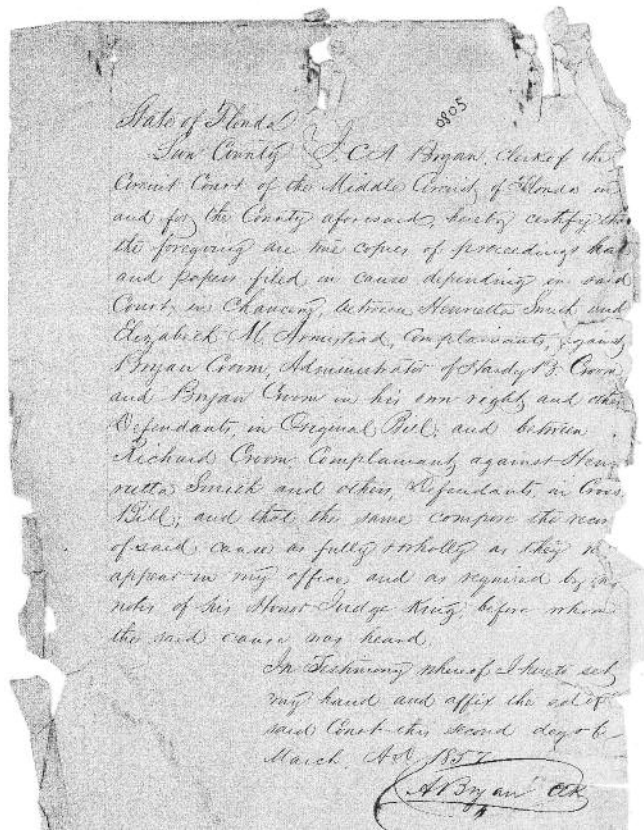 0805
State of Florida
Leon County } I, C A Bryan, clerk of the
Circuit Court of the Middle Circuit of Florida in
and for the County aforesaid, hereby certify tha
the foregoing are true copies of proceedings had
and papers filed in cause depending in said
Court, in Chancery, between Henrietta Smith and
Elizabeth M. Armistead, Complainants, against
Bryan Croom, Administrator of Hardy B. Croom
and Bryan Croom in his own right, and other
Defendants, in Original Bill, and between
Richard Croom Complainant, against Hen
rietta Smith and others, Defendants, in Cross
Bill; and that the same compose the recor
of said cause as fully & wholly as they
appear in my office, and as required by
notes of his Honor Judge King before whom
the said cause was heard.
In Testimony whereof I hereto set
my hand and affix the seal of
said Court this second day of
March AD 1857
A Bryan Clk